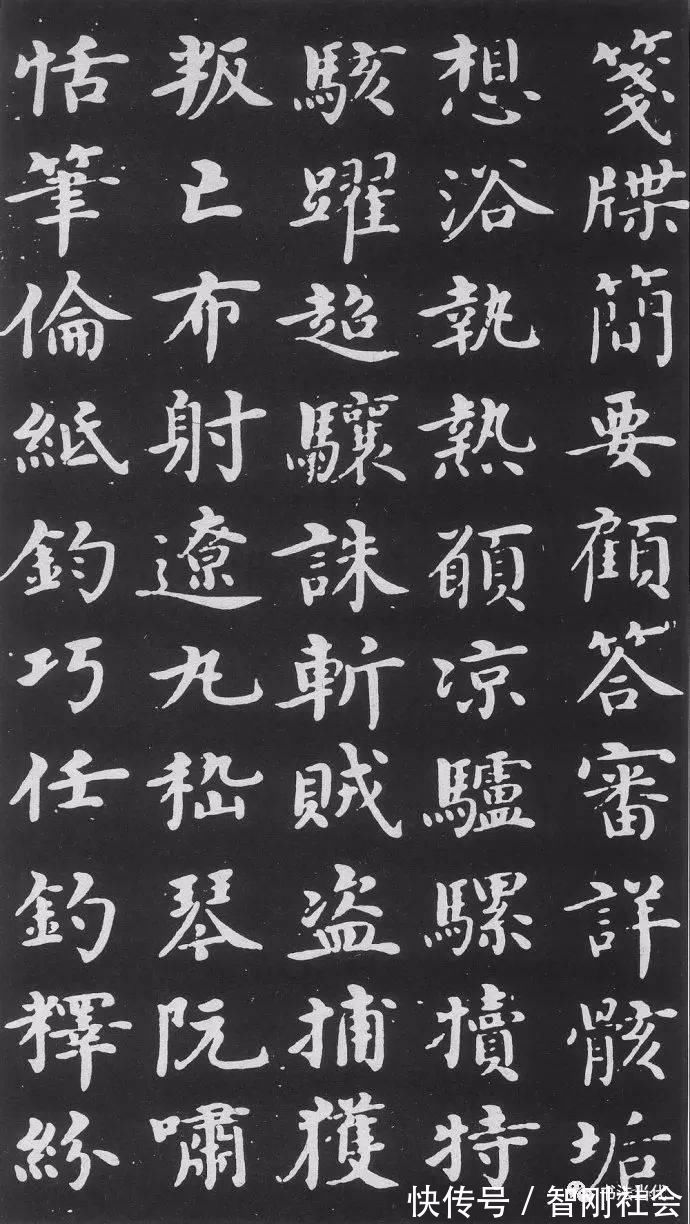 箋牒簡要顧答審詳骸垢
想浴執熱願凉驢騾犢特
駭躍超驤誅斬賊盗捕獲
叛亡布射遼丸嵇琴阮嘯
恬筆倫紙鈞巧任釣釋紛
书法当代
快传号/智刚社会